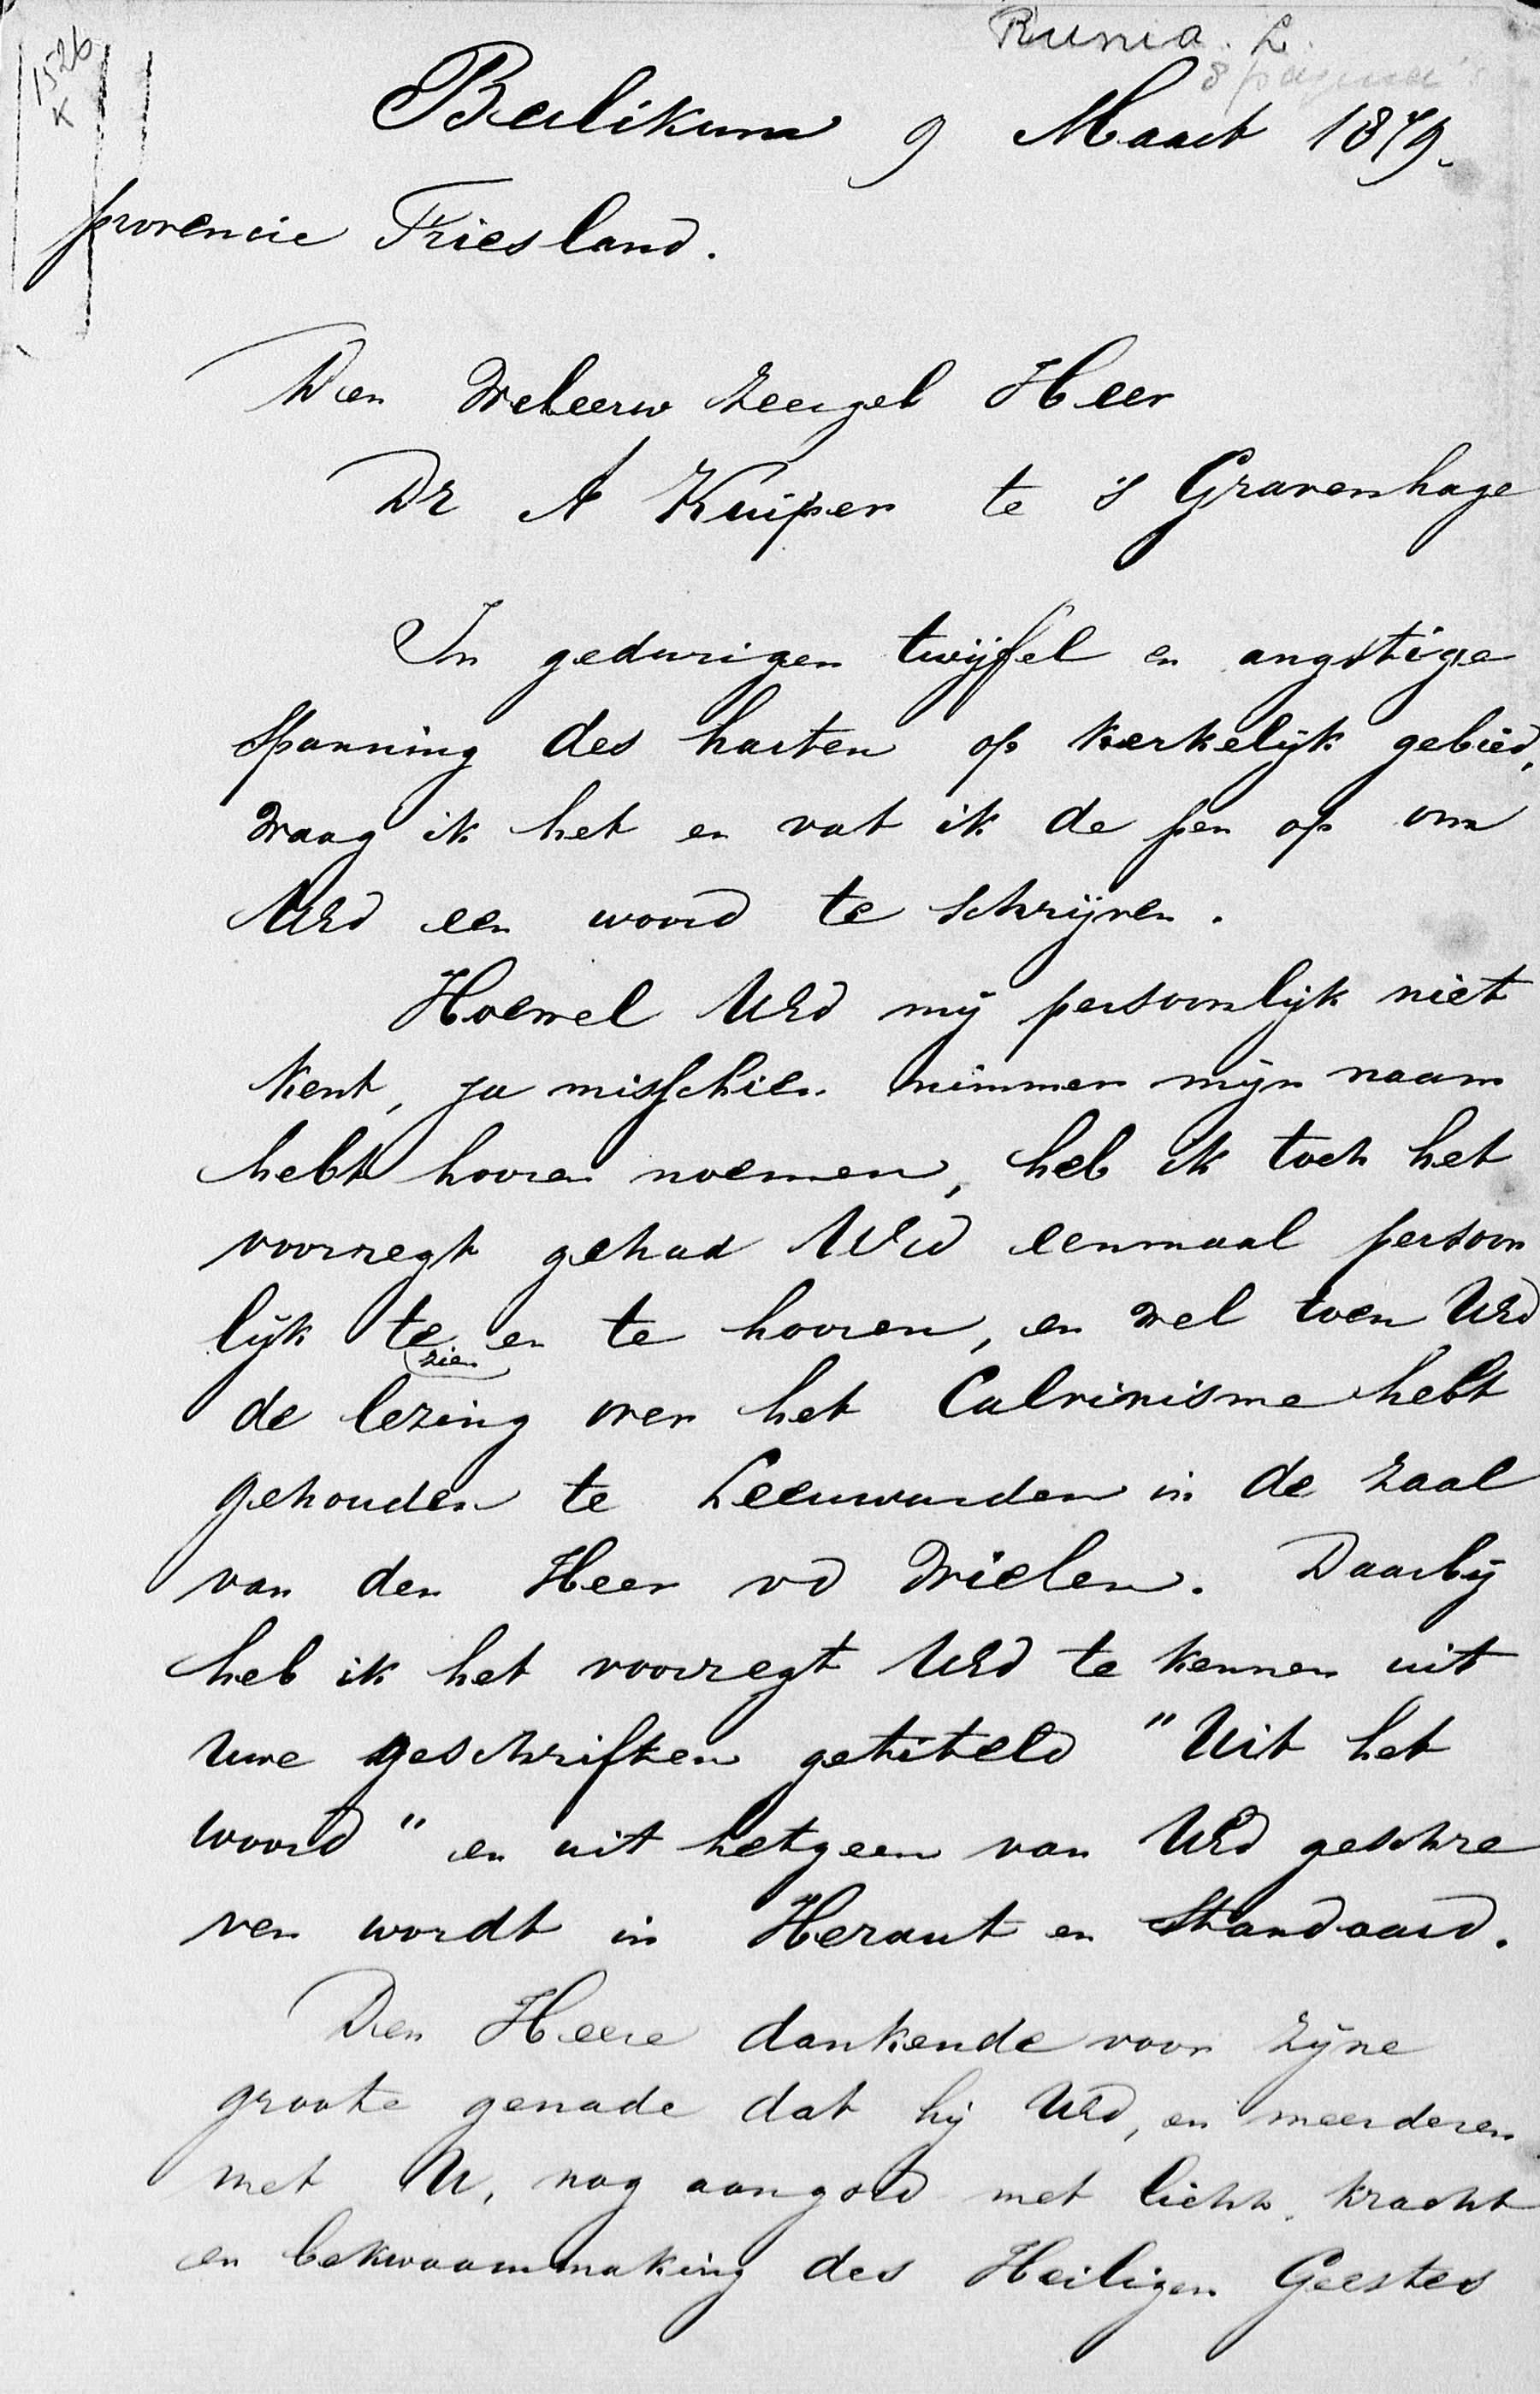 Runia. L.
8 pagina's
1526
K
Beilikum 9 Maart 1879.
provencie Friesland.
Den Weleerw Zeergel Heer
Dr A Kuiper te 's Gravenhage
In gedurigen twijffel en angstige
spanning des harten op kerkelijk gebied,
waag ik het en vat ik de pen op om
UEd een woord te schrijven.
Hoewel UEd mij persoonlijk niet
kent, ja misschien nimmer mijn naam
hebt hooren noemen, heb ik toch het
voorregt gehad UEd eenmaal persoon
lijk te zien en te hooren, en wel toen UEd
de lezing over het Calvinisme hebt
gehouden te Leeuwarden in de zaal
van den Heer vd Wielen. Daarbij
heb ik het voorregt UEd te kennen uit
uwe geschriften getiteld "Uit het
woord" en uit hetgeen van UEd geschre
ven wordt in Heraut en Standaard.
Den Heere dankende voor zijne
groote genade dat hij UEd, en meerderen
met U, nog aangord met licht, kracht
en bekwaammaking des Heiligen Geestes